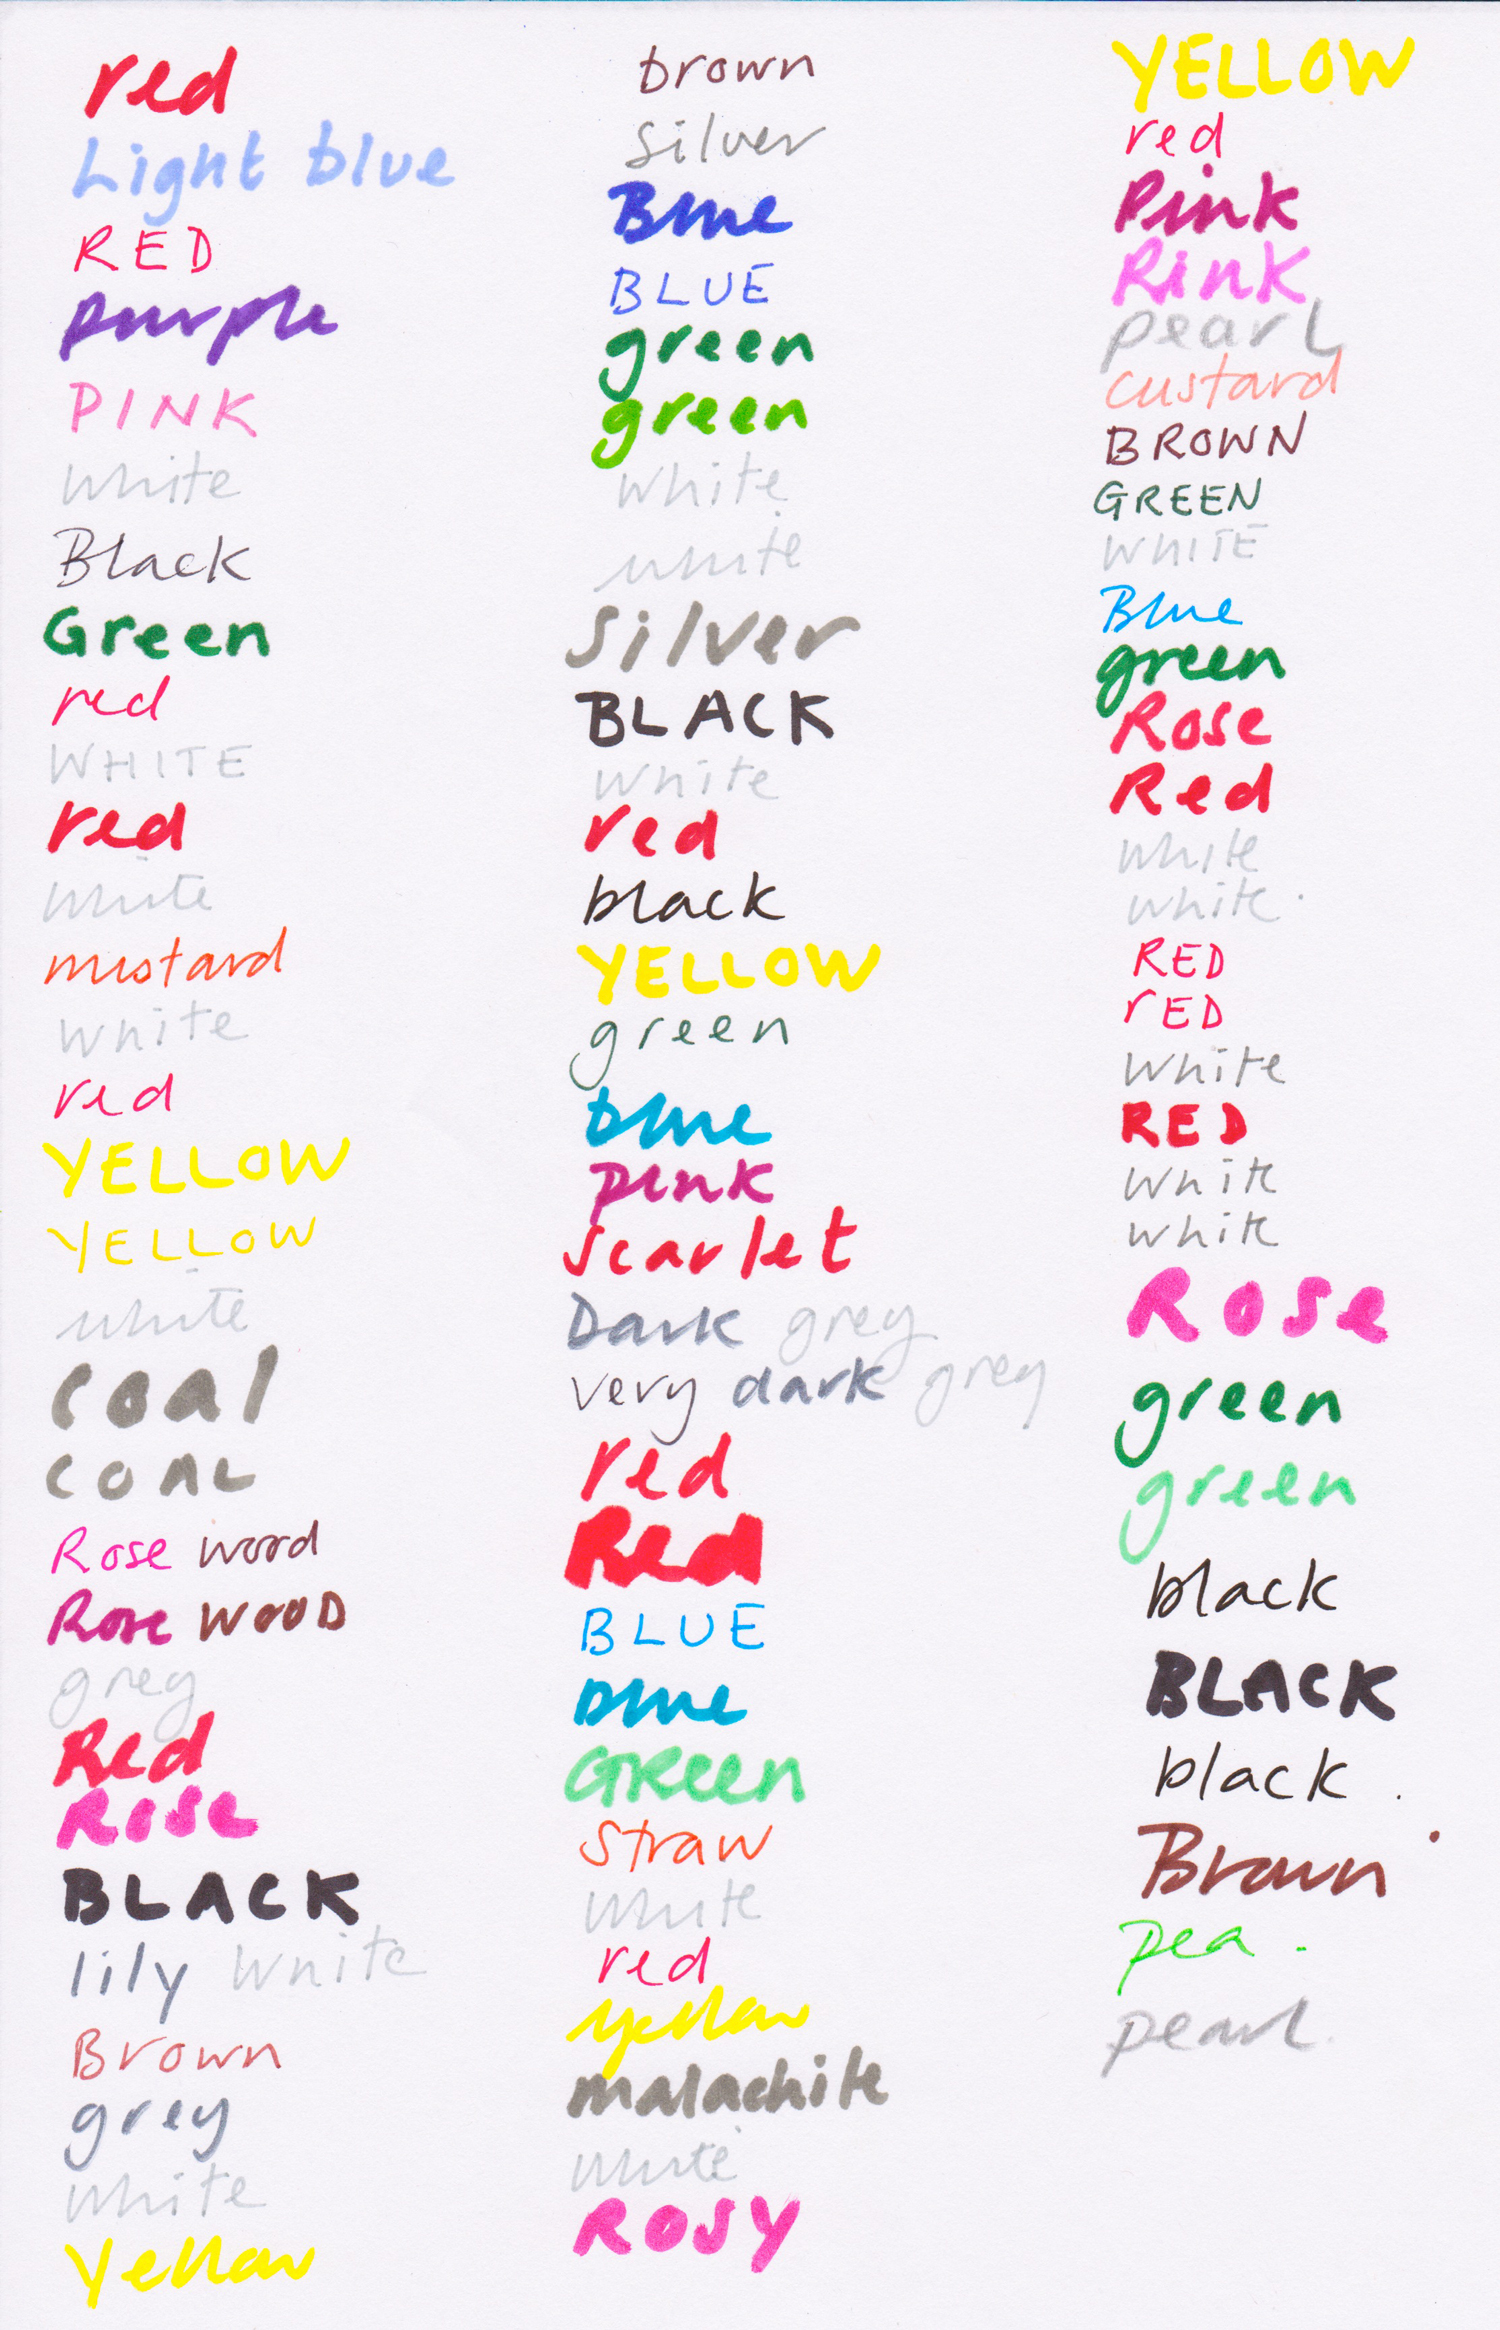 red
Light blue
RED
purple
PINK
white
Black
Green
red
WHITE
red
white
mustard
white
red
YELLOW
YELLOW
white
coal
COAL
Rose wood
Rose WOOD
grey
Red
Rose
BLACK
lily white
Brown
grey
white
Yellow
brown
silver
Blue
BLUE
green
green
white
white
Silver
BLACK
white
red
black
YELLOW
green
blue
pink
scarlet
Dark grey
very dark grey
red
Red
BLUE
blue
GReen
Straw
white
red
yellow
malachite
white
ROSY
YELLOW
red
Pink
Pink
pearl
custard
BROWN
GREEN
WHITE
Blue
green
Rose
Red
white
white.
RED
rED
white
RED
white
white
Rose
green
green
black
BLACK
black.
Brown
pea.
pearl.